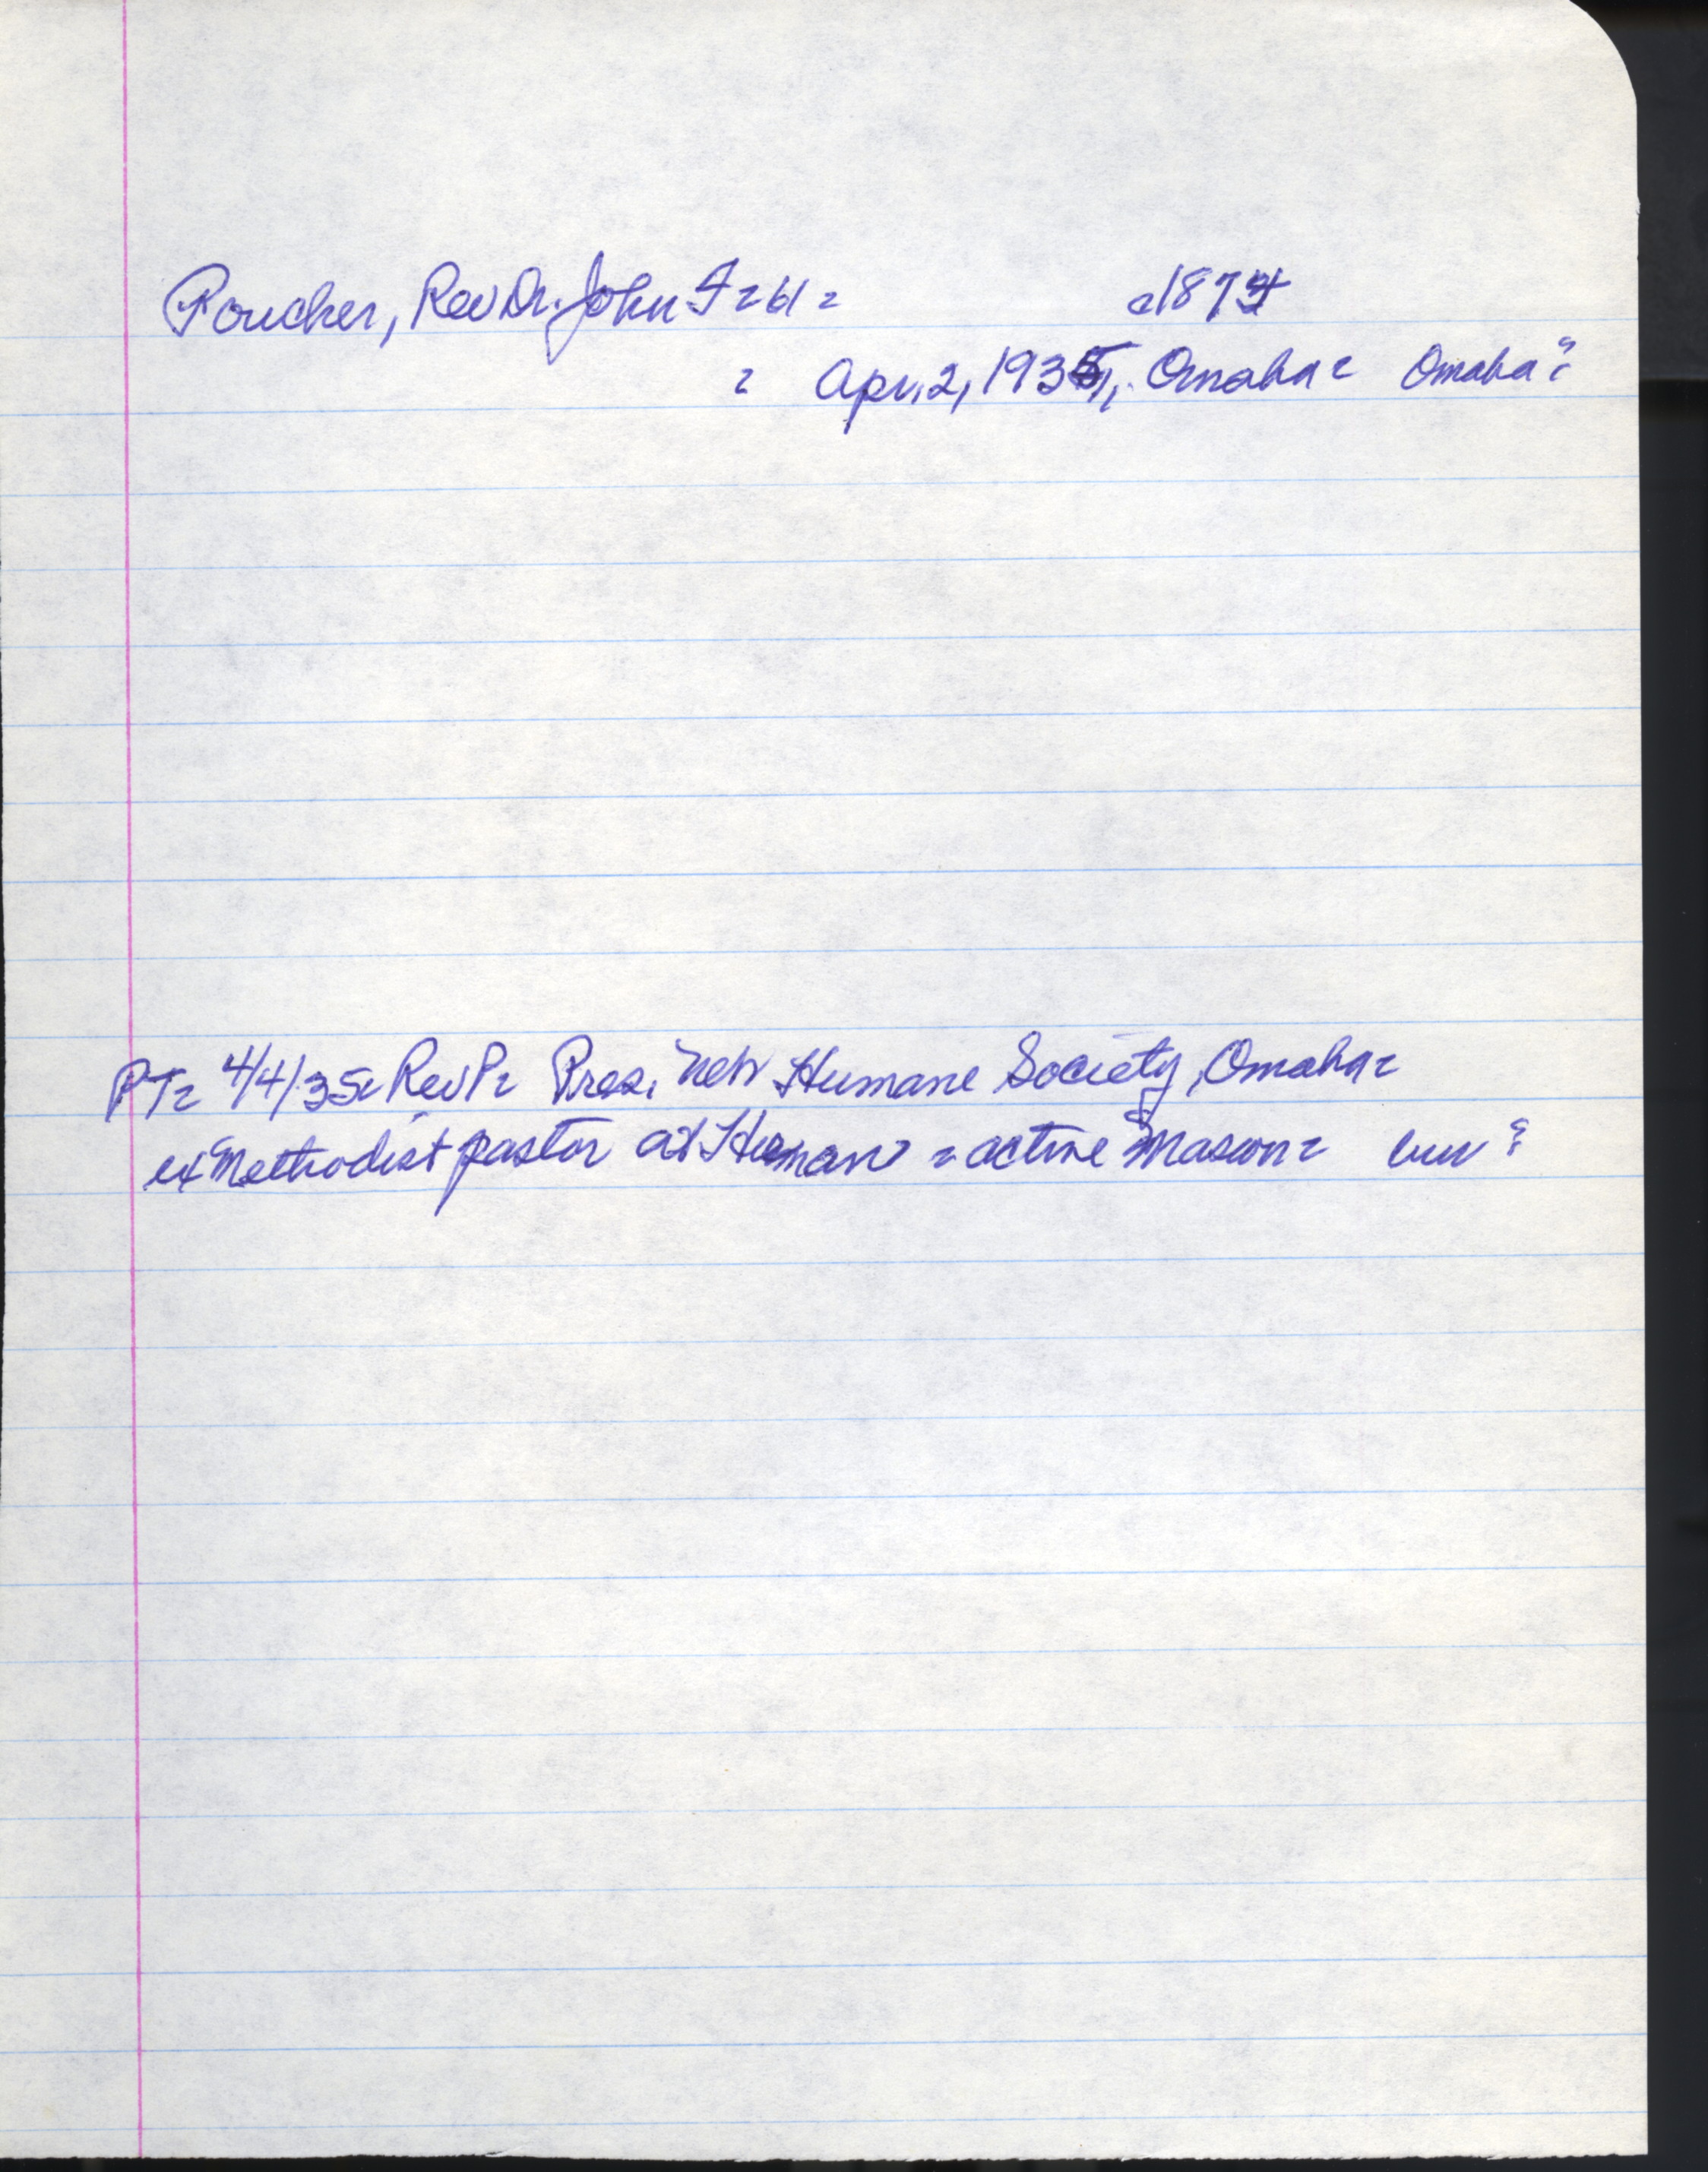 Poucher, Rev Dr. John F = 61 = c1874
= Apr. 2, 1935, Omaha = Omaha?
PT = 4/4/35 = Rev P = Pres. Neb Humane Society, Omaha =
ex Methodist pastor at Herman = active Mason =